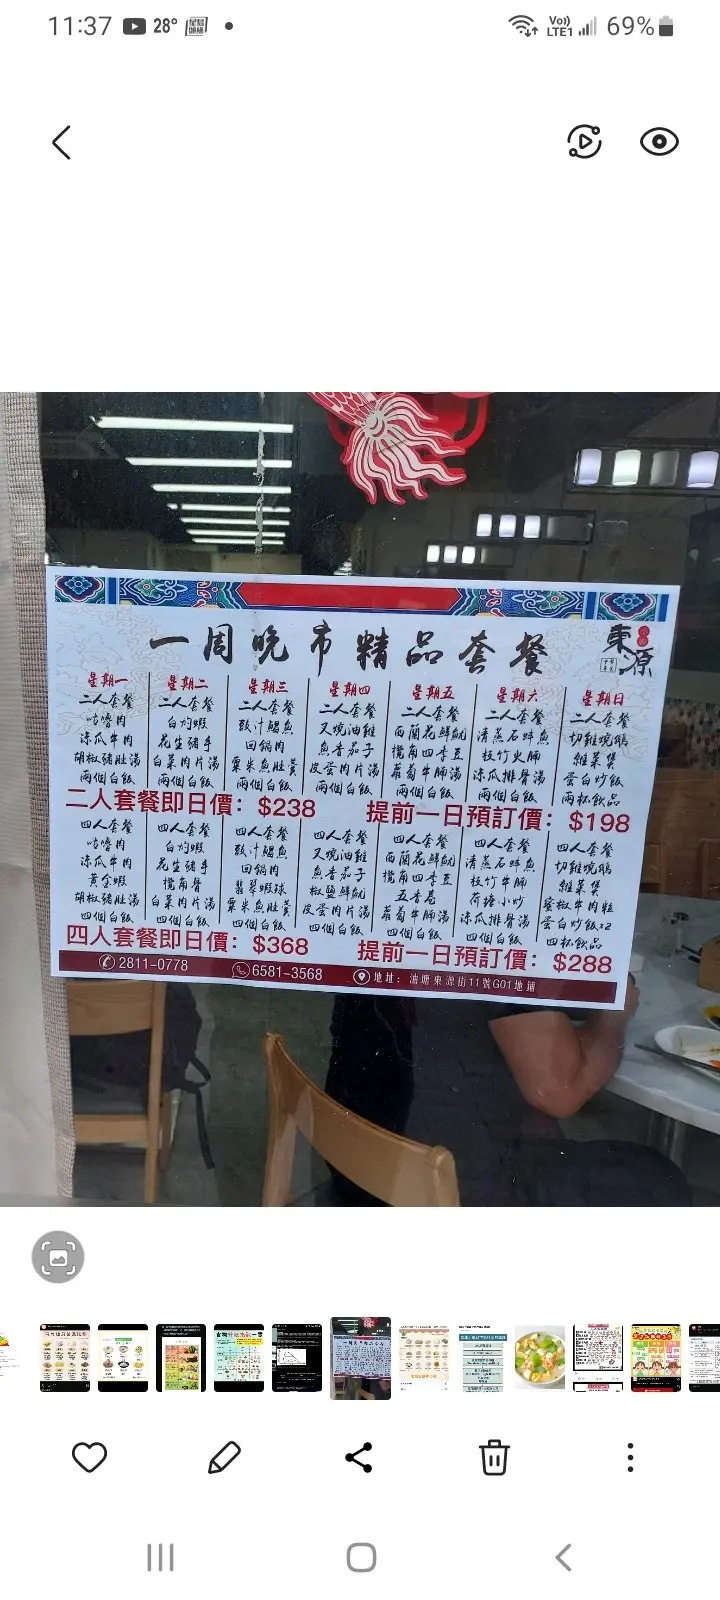 11:37 28° Vo)) LTE1 69%
一周晚市精品套餐
東源
星期一
二人套餐
咕嚕肉
涼瓜牛肉
胡椒豬肚湯
兩個白飯
星期二
二人套餐
白灼蝦
花生豬手
白菜肉片湯
兩個白飯
星期三
二人套餐
豉汁鯧魚
回鍋肉
粟米魚肚羹
兩個白飯
星期四
二人套餐
叉燒油雞
魚香茄子
皮蛋肉片湯
兩個白飯
星期五
二人套餐
西蘭花鮮魷
欖角四季豆
蘿蔔牛腩湯
兩個白飯
星期六
二人套餐
清蒸石蚌魚
枝竹火腩
涼瓜排骨湯
兩個白飯
星期日
二人套餐
切雞燒鵝
雜菜煲
蛋白炒飯
兩杯飲品
二人套餐即日價：$238 提前一日預訂價：$198
四人套餐
咕嚕肉
涼瓜牛肉
黃金蝦
胡椒豬肚湯
四個白飯
四人套餐
白灼蝦
花生豬手
欖角骨
白菜肉片湯
四個白飯
四人套餐
豉汁鯧魚
回鍋肉
翡翠蝦球
粟米魚肚羹
四個白飯
四人套餐
叉燒油雞
魚香茄子
椒鹽鮮魷
皮蛋肉片湯
四個白飯
四人套餐
西蘭花鮮魷
欖角四季豆
五香卷
蘿蔔牛腩湯
四個白飯
四人套餐
清蒸石蚌魚
枝竹牛腩
荷塘小炒
涼瓜排骨湯
四個白飯
四人套餐
切雞燒鵝
雜菜煲
蜜椒牛肉粒
蛋白炒飯x2
四杯飲品
四人套餐即日價：$368 提前一日預訂價：$288
2811-0778 6581-3568 地址：油塘東源街11號G01地鋪